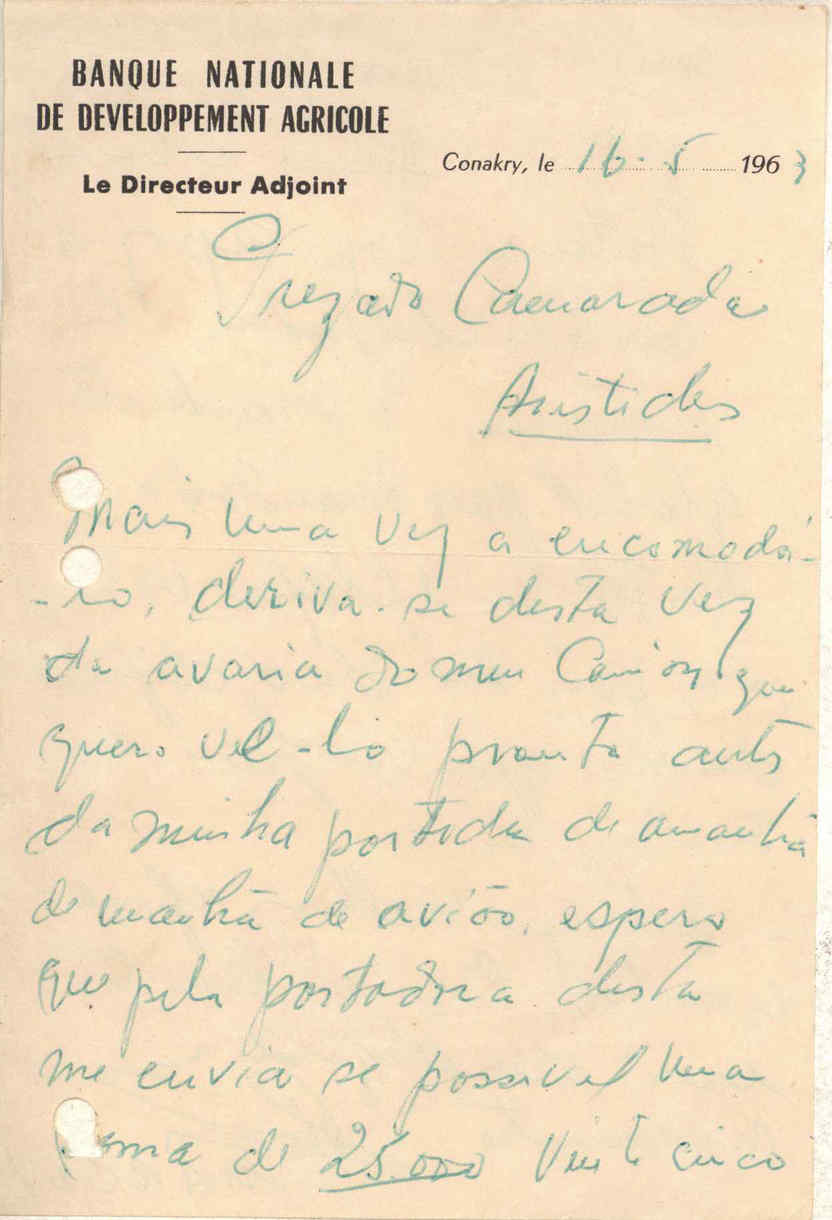 BANQUE NATIONALE
DE DEVELOPPEMENT AGRICOLE
Le Directeur Adjoint
Conakry, le 16-5 1963
Prezado Camarada
Aristides
Mais uma vez a encomodá-
-lo, deriva-se desta vez
da avaria do meu Camion que
quero vel-lo pronto antes
da minha partida de amanhã
de manhã de avião, espero
que pela portadora desta
me envia se possivel uma
soma de 25.000 vinte cinco